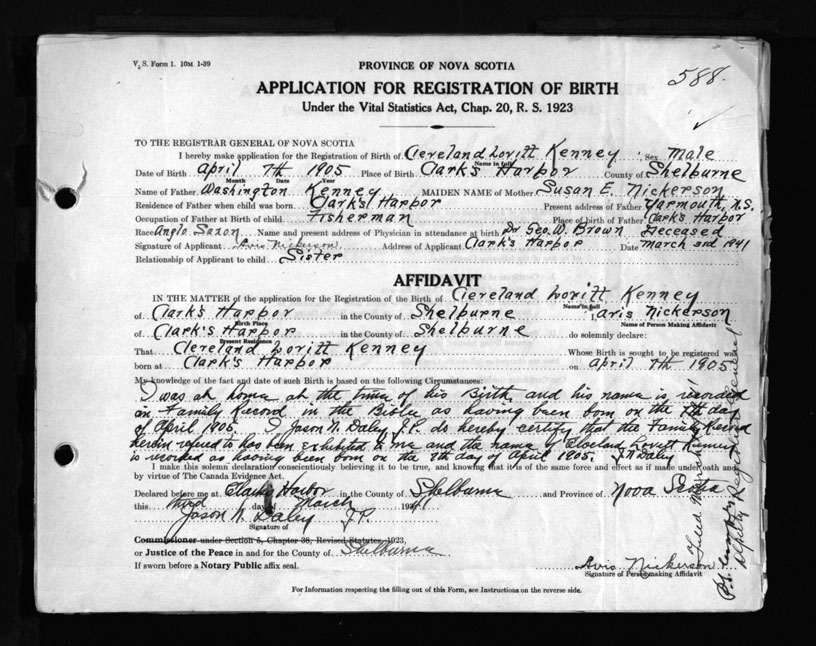 V. S. Form 1. 10M 1-39
PROVINCE OF NOVA SCOTIA
588.
APPLICATION FOR REGISTRATION OF BIRTH
Under the Vital Statistics Act, Chap. 20, R. S. 1923
TO THE REGISTRAR GENERAL OF NOVA SCOTIA
I hereby make application for the Registration of Birth of Cleveland Lovitt Kenney Sex Male
Name in full
Date of Birth April 7th 1905 Place of Birth Clark's Harbor County of Shelburne
Month Date Year
Name of Father Washington Kenney MAIDEN NAME of Mother Susan E. Nickerson
Residence of Father when child was born Clark's Harbor Present address of Father Yarmouth, N.S.
Occupation of Father at Birth of child. Fisherman Place of birth of Father Clark's Harbor
Race Anglo Saxon Name and present address of Physician in attendance at birth Dr Geo. W. Brown Deceased
Signature of Applicant Avis Nickerson Address of Applicant Clark's Harbor Date March 3rd 1941
Relationship of Applicant to child Sister
AFFIDAVIT
IN THE MATTER of the application for the Registration of the Birth of Cleveland Lovitt Kenney
Name in full
of Clark's Harbor in the County of Shelburne I, Avis Nickerson
Birth Place Name of Person Making Affidavit
of Clark's Harbor in the County of Shelburne do solemnly declare:
Present Residence
That Cleveland Lovitt Kenney Whose Birth is sought to be registered was
born at Clark's Harbor on April 7th 1905
My knowledge of the fact and date of such Birth is based on the following Circumstances:
I was at home at the time of his Birth, and his name is recorded
in Family Record in the Bible as having been born on the 7th day
of April 1905. I Jason N. Daley J.P. do hereby certify that the Family Record
herein refered to has been exhibited to me and the name of Cleveland Lovitt Kenney
is recorded as having been born on the 7th day of April 1905. J N Daley
I make this solemn declaration conscientiously believing it to be true, and knowing that it is of the same force and effect as if made under oath and
by virtue of The Canada Evidence Act.
Declared before me at Clarks Harbor in the County of Shelburne and Province of Nova Scotia
this third day of March 1941
Jason N. Daley J.P.
Signature of
Commissioner under Section 5, Chapter 38, Revised Statutes, 1923,
or Justice of the Peace in and for the County of Shelburne
If sworn before a Notary Public affix seal.
Avis Nickerson
Signature of Person making Affidavit
For Information respecting the filling out of this Form, see Instructions on the reverse side.
Filed March
Deputy Registrar General